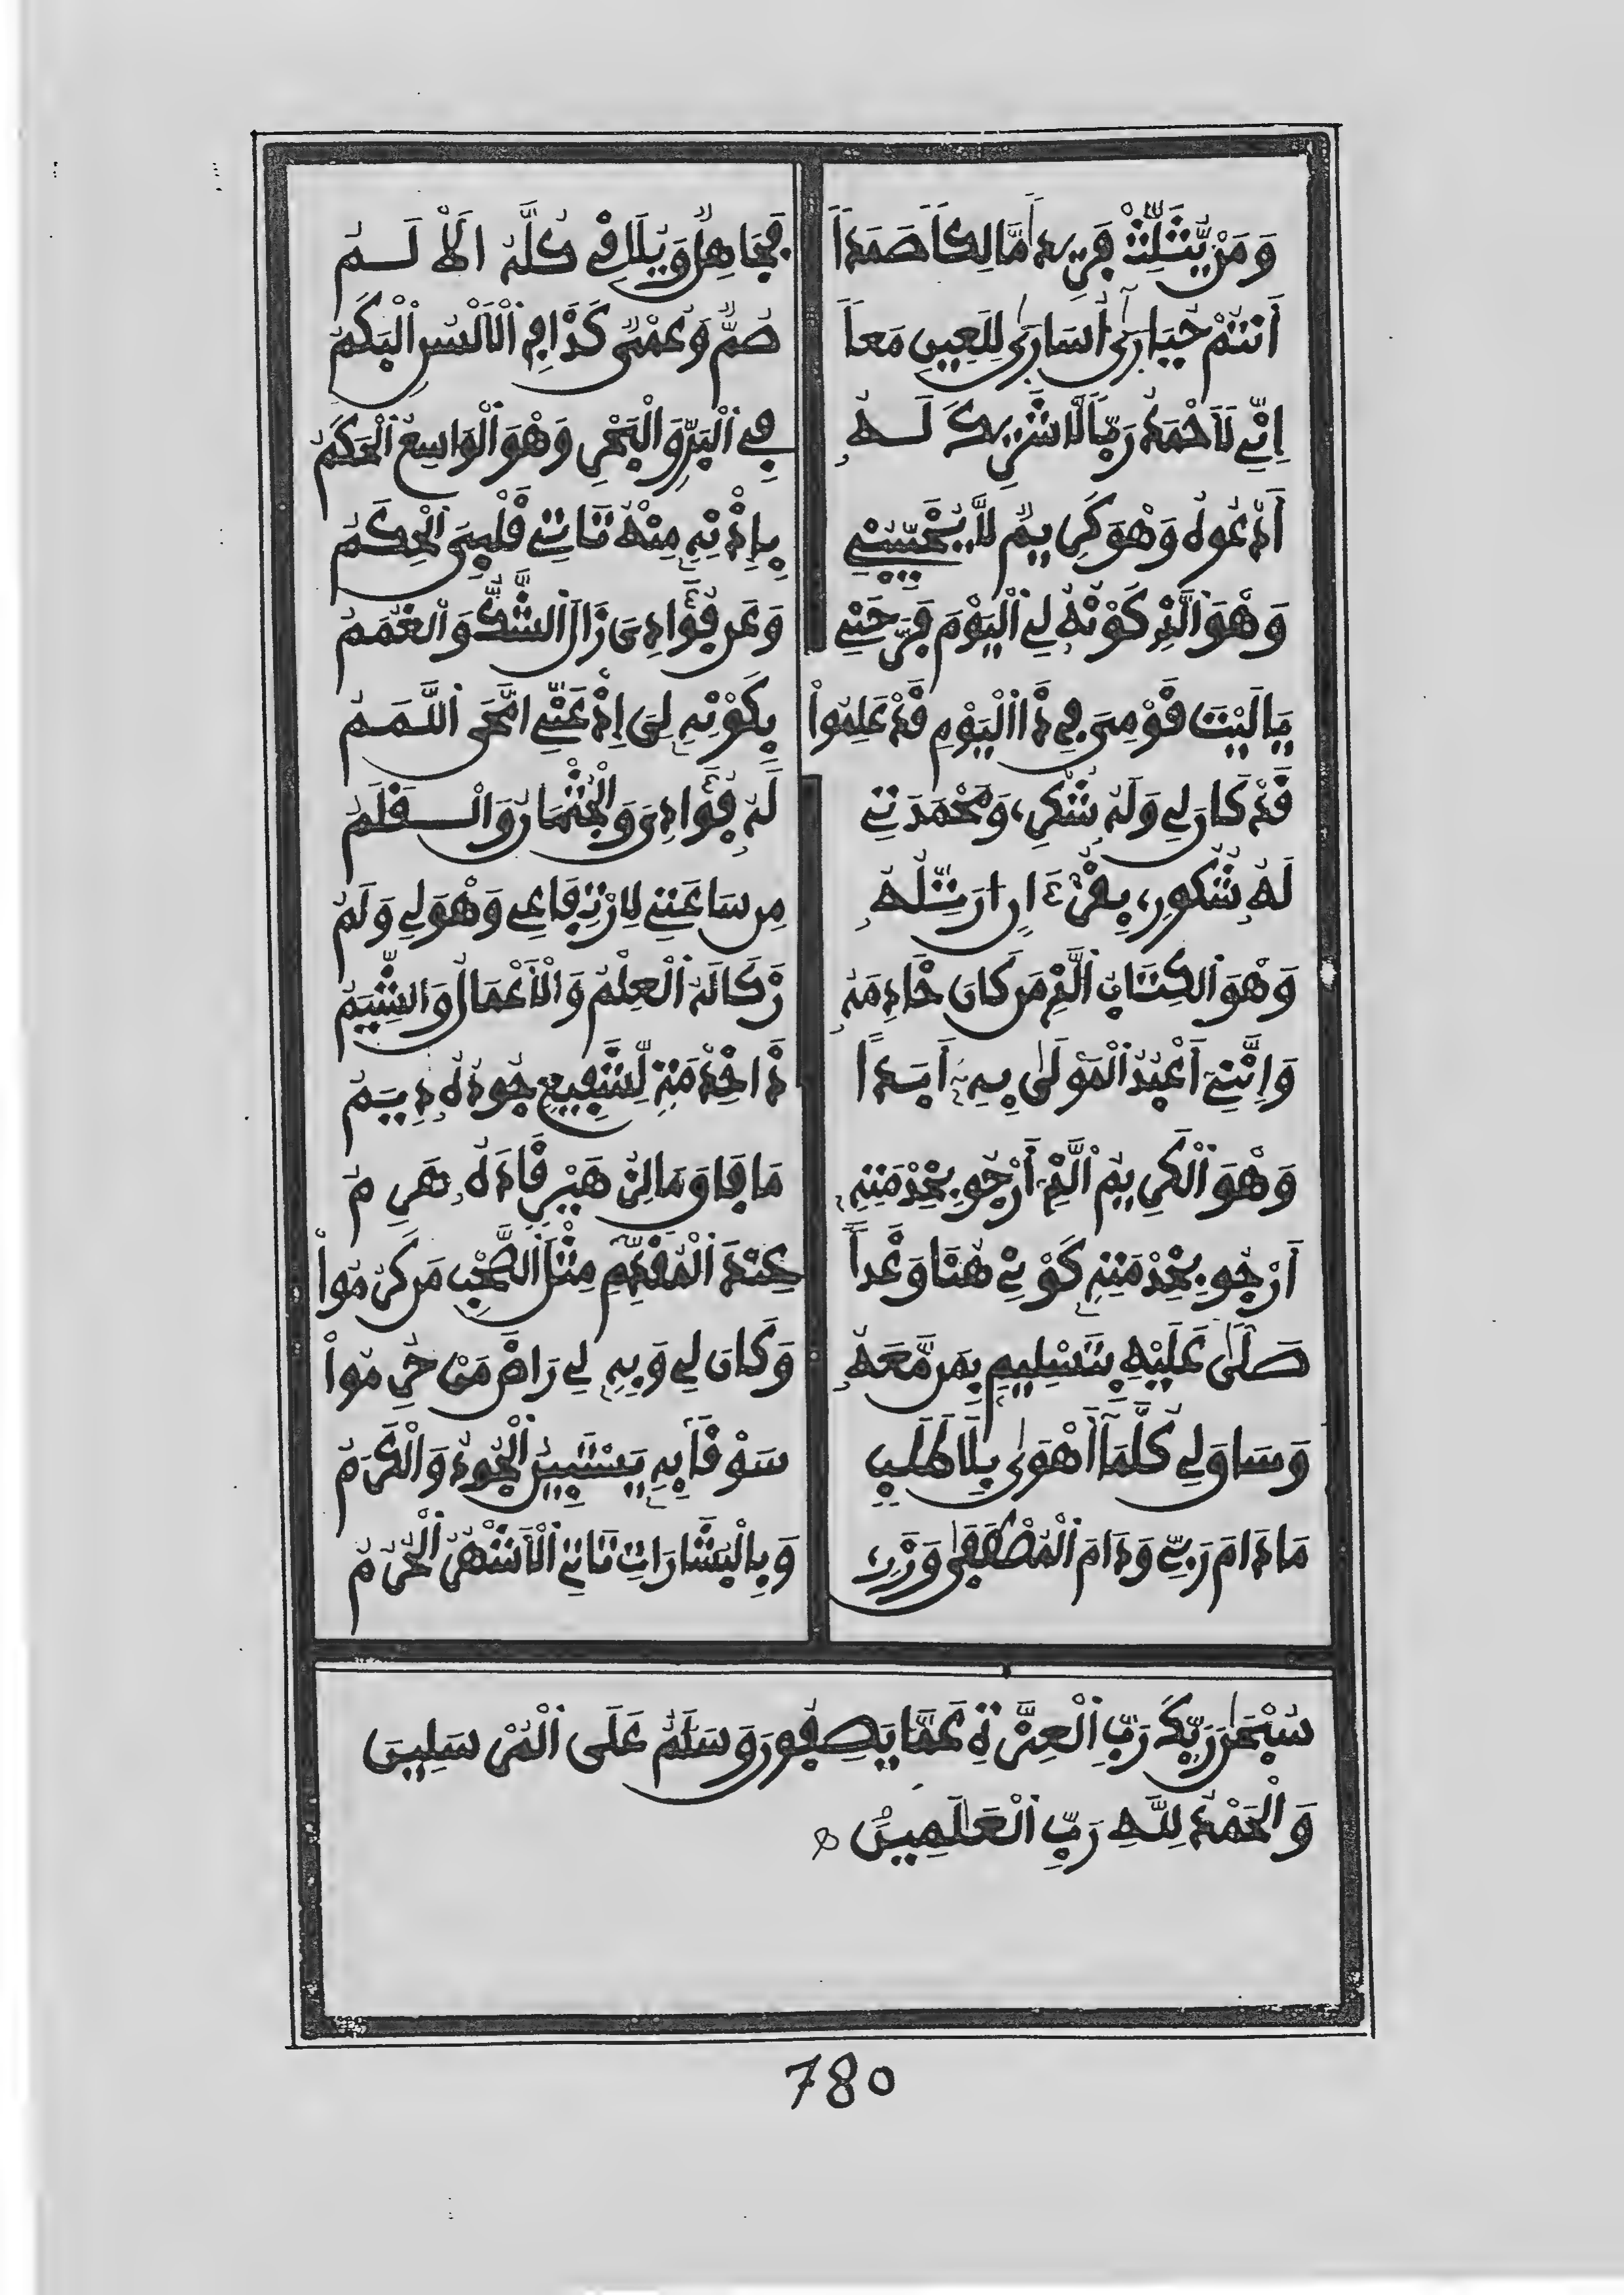 وَمَنْ يُّثَلِّثْ فَرِيداً مَّالِكاً صَمَداً فَجَاهِلٌ وَيُلَاقِي كُلَّهُ الْأَلَمُ
أَنتُمْ حَيَارَىٰ أُسَارَىٰ لِلَّعِينِ مَعاً صُمٌّ وَعُمْيٌ كَذَا فِي الْأَلْسُنِ الْبَكَمُ
إِنِّي لَأَحْمَدُ رَبّاً لَّا شَرِيكَ لَهُ فِي الْبَرِّ وَالْبَحْرِ وَهْوَ الْوَاسِعُ الْحَكَمُ
أَدْعُوهُ وَهْوَ كَرِيمٌ لَّا يُخَيِّبُنِي بِإِذْنِهِ مِنْهُ تَاتِي قَلْبِيَ الْحِكَمُ
وَهْوَ الَّذِي كَوْنُهُ لِي الْيَوْمَ فَرَّحَنِي وَعَن فُؤَادِيَ زَالَ الشَّكُّ وَالْغُمَمُ
يَا لَيْتَ قَوْمِيَ فِي ذَا الْيَوْمِ قَدْ عَلِمُواْ بِكَوْنِهِ لِيَ إِذْ عَنِّي امَّحَى اللَّمَمُ
قَدْ كَانَ لِي وَلَهُ شُكْرِي وَمَحْمَدَتِي لَهُ فُؤَادِيَ وَالْجُثْمَانُ وَالْقَلَمُ
لَهُ شُكُورِي بِقُرْءَانٍ أُرَتِّلُهُ مِن سَاعَتِي لِارْتِفَاعِي وَهْوَ لِي وَلَمُ
وَهْوَ الْكِتَابُ الَّذِي مَن كَانَ خَادِمَهُ زَكَا لَهُ الْعِلْمُ وَالْأَعْمَالُ وَالشِّيَمُ
وَإِنَّنِي أَعْبُدُ الْمَوْلَىٰ بِهِ أَبَداً ذَا خِدْمَةٍ لِّشَفِيعٍ جُودُهُ دِيَمُ
وَهْوَ الْكَرِيمُ الَّذِي أَرْجُو بِخِدْمَتِهِ مَا فَاقَ مَا لِزُهَيْرٍ قَادَهُ هَرِمُ
أَرْجُو بِخِدْمَتِهِ كَوْنِي هُنَا وَغَداً عِنْدَ الْمُقَدَّمِ مِثْلَ الصَّحْبِ مَن كَرُمُواْ
صَلَّىٰ عَلَيْهِ بِتَسْلِيمٍ بِمَن مَّعَهُ وَكَانَ لِي وَبِهِ لِي رَاضَ مَنْ حُرِمُواْ
وَسَاقَ لِي كُلَّمَا أَهْوَىٰ بِلَا طَلَبٍ سَوْقاً بِهِ يَسْتَبِينُ الْجُودُ وَالْكَرَمُ
مَا دَامَ رَبِّي وَدَامَ الْمُصْطَفَىٰ وَزَرِي وَبِالْبَشَارَاتِ تَاتِي الْأَشْهُرُ الْحُرُمُ
سُبْحَٰنَ رَبِّكَ رَبِّ الْعِزَّةِ عَمَّا يَصِفُونَ وَسَلَٰمٌ عَلَى الْمُرْسَلِينَ
وَالْحَمْدُ لِلَّهِ رَبِّ الْعَٰلَمِينَ
780